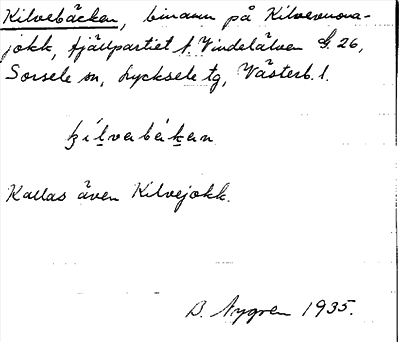 Kilvebäcken, binamn på Kilvevuoma-
jokk, fjällpartiet f. Vindelälven G. 26,
Sorsele sn, Lycksele tg, Västerb. l.
kilvabäkan
Kallas även Kilvejokk.
B. Nygren 1935.